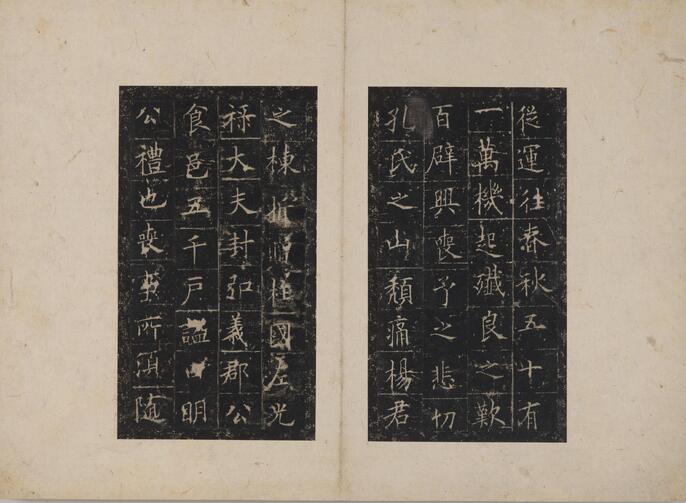 從運往春秋五十有
一萬機起殲良之歎
百辟興喪予之悲切
孔氏之山頹痛楊君
之棟 柱國左光
祿大夫封弘義郡公
食邑五千戶謚曰明
公禮也喪事所須隨